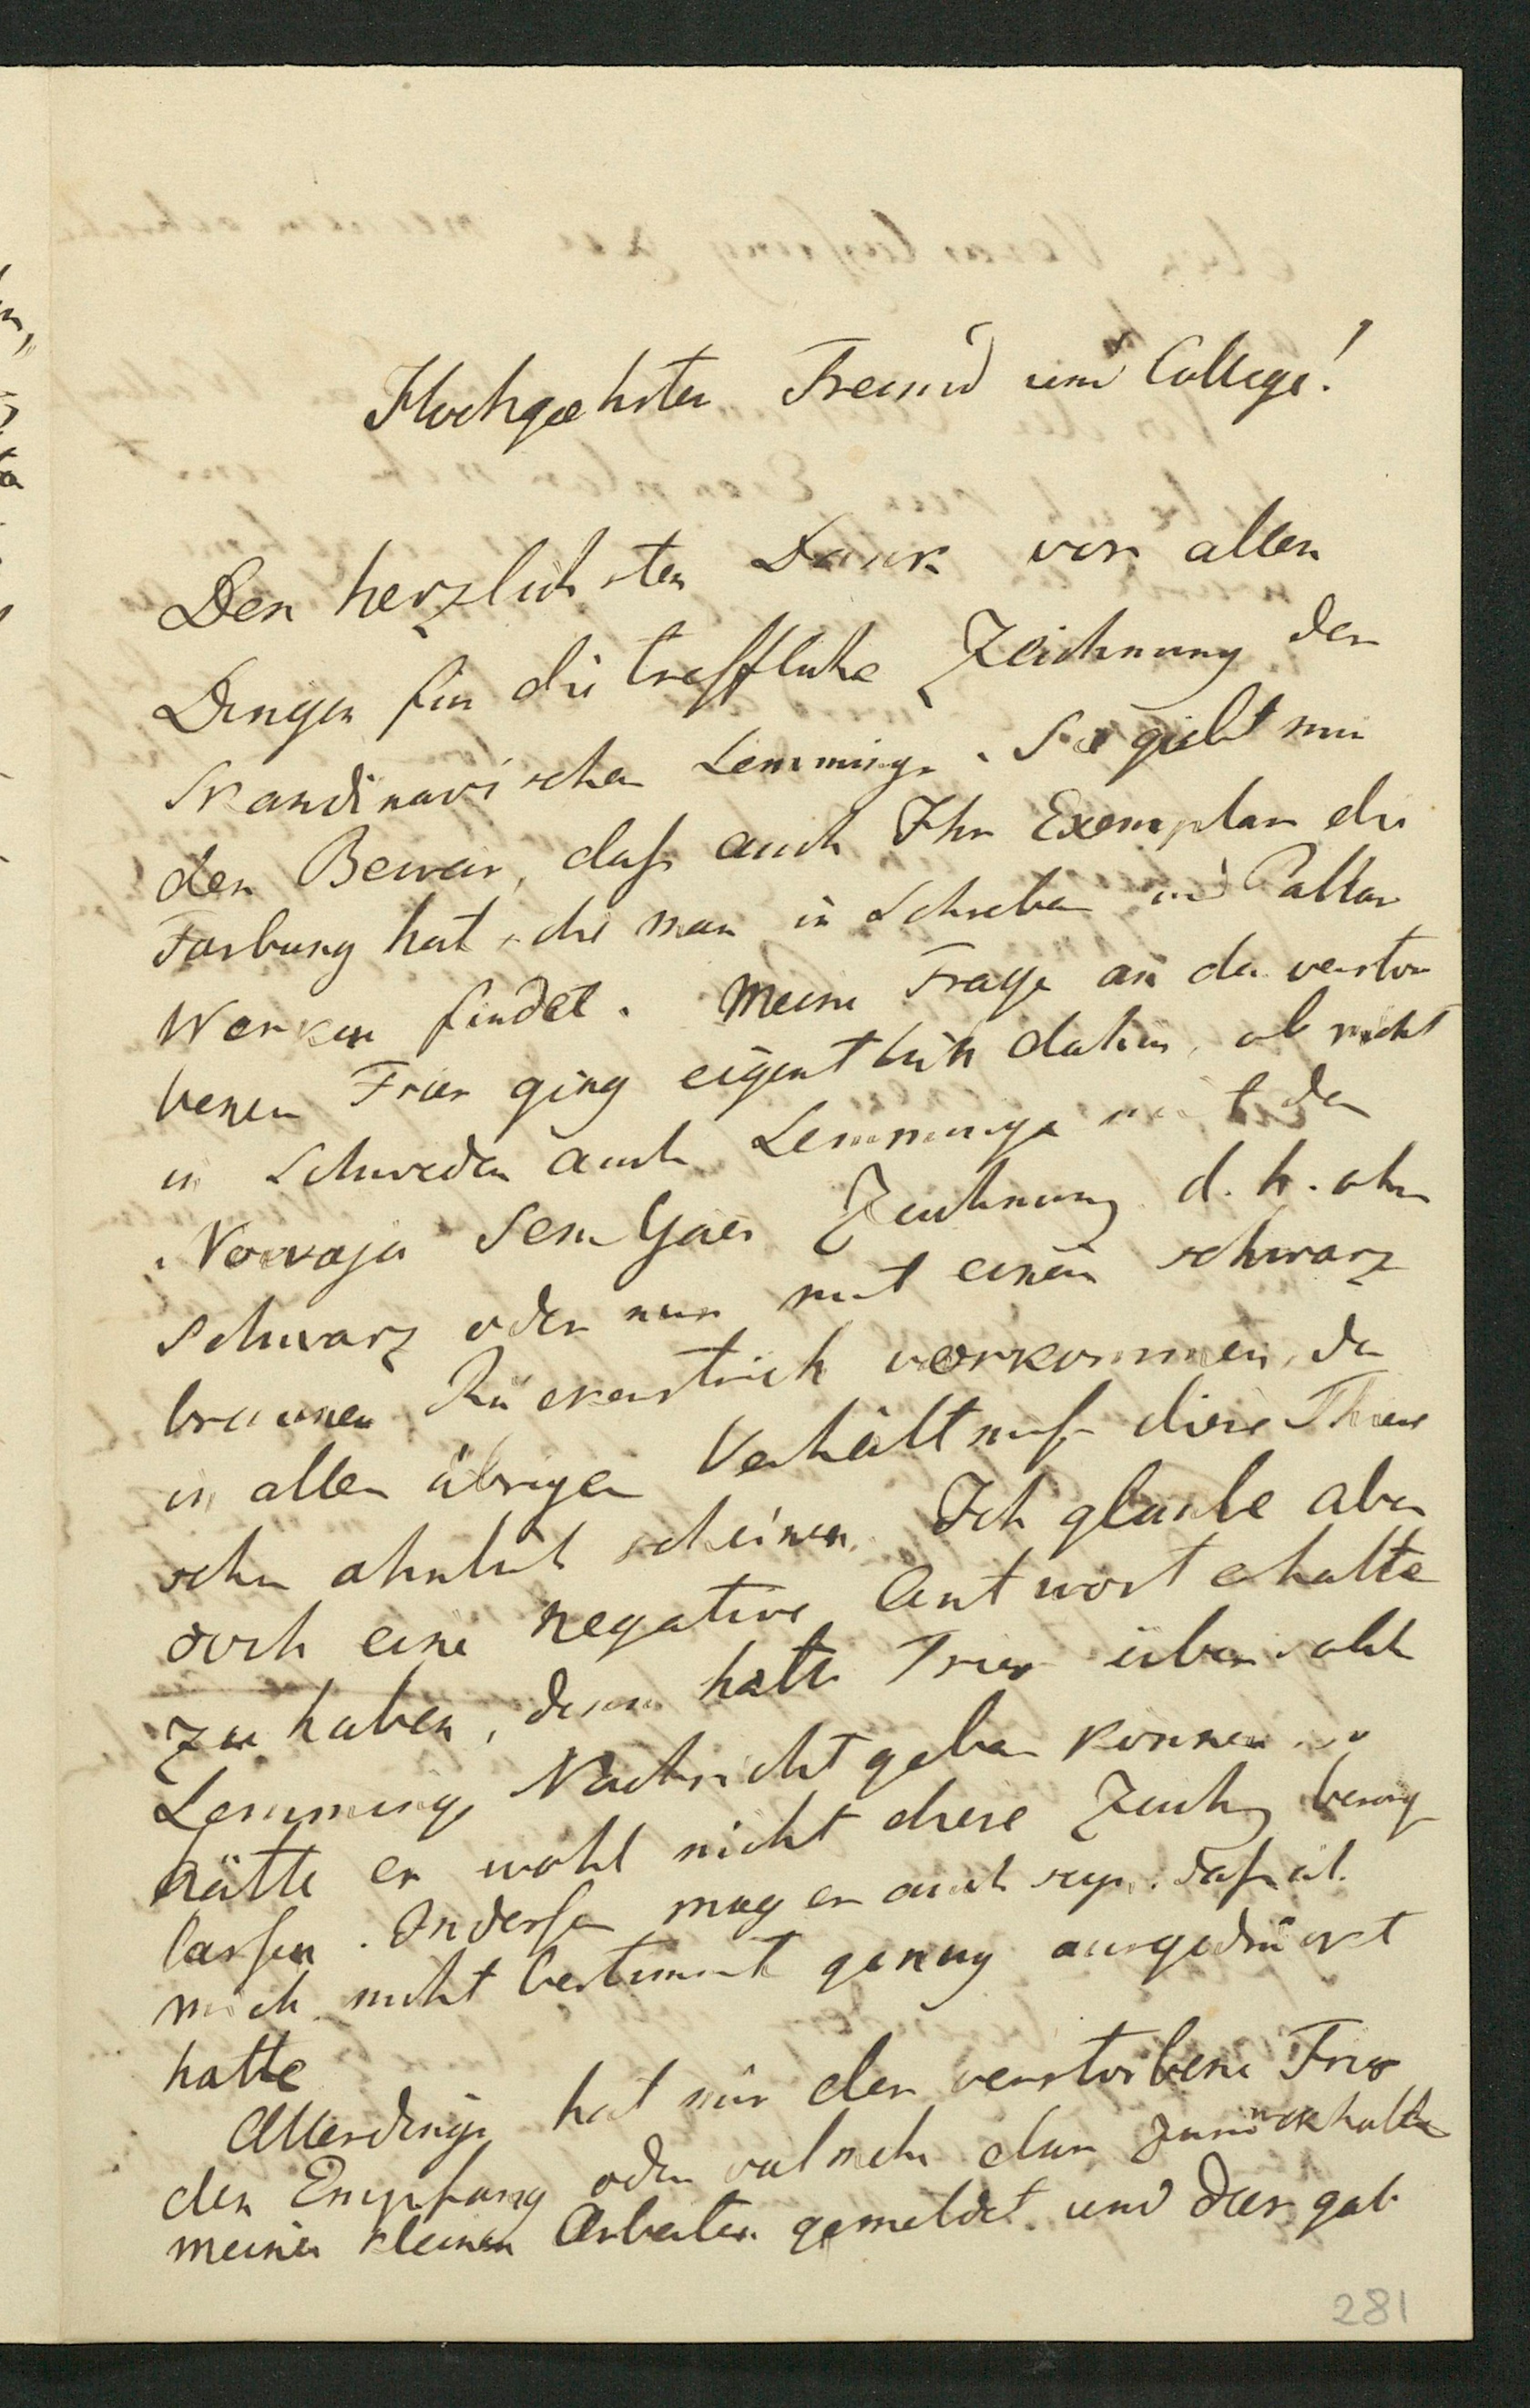 Hochgeehrter Freund und College!
Den herzlichsten Dank vor allen
Dingen für die treffliche Zeichnung der
Skandinavischen Lemminge. Sie giebt mir
den Beweis, daß auch Ihr Exemplar die
Färbung hat, die man in Schreber und Pallas
Werken findet. Meine Frage an den verstor
benen Fries ging eigentlich dahin, ob nicht
in Schweden auch Lemminge mit der
Nowaja Semljaer Zeichnung d. h. ohne
schwarz oder nur mit einem schwarz
braunen Rückenstrich vorkommen, da
in allen übrigen Verhältniß diese Thiere
sehr ähnlich scheinen. Ich glaube aber
doch eine negative Antwort erhalten
zu haben, denn hätte Fries über solche
Lemminge Nachricht geben können so
hätte er wohl nicht diese Zeichng besorg
lassen. Indessen mag er auch seyn, daß ich
mich nicht bestimmt genug ausgedrückt
hatte
Allerdings hat mir der verstorbene Fries
den Empfang oder vielmehr das Zurückhalten
meiner kleinen Arbeiten gemeldet und das gab
281